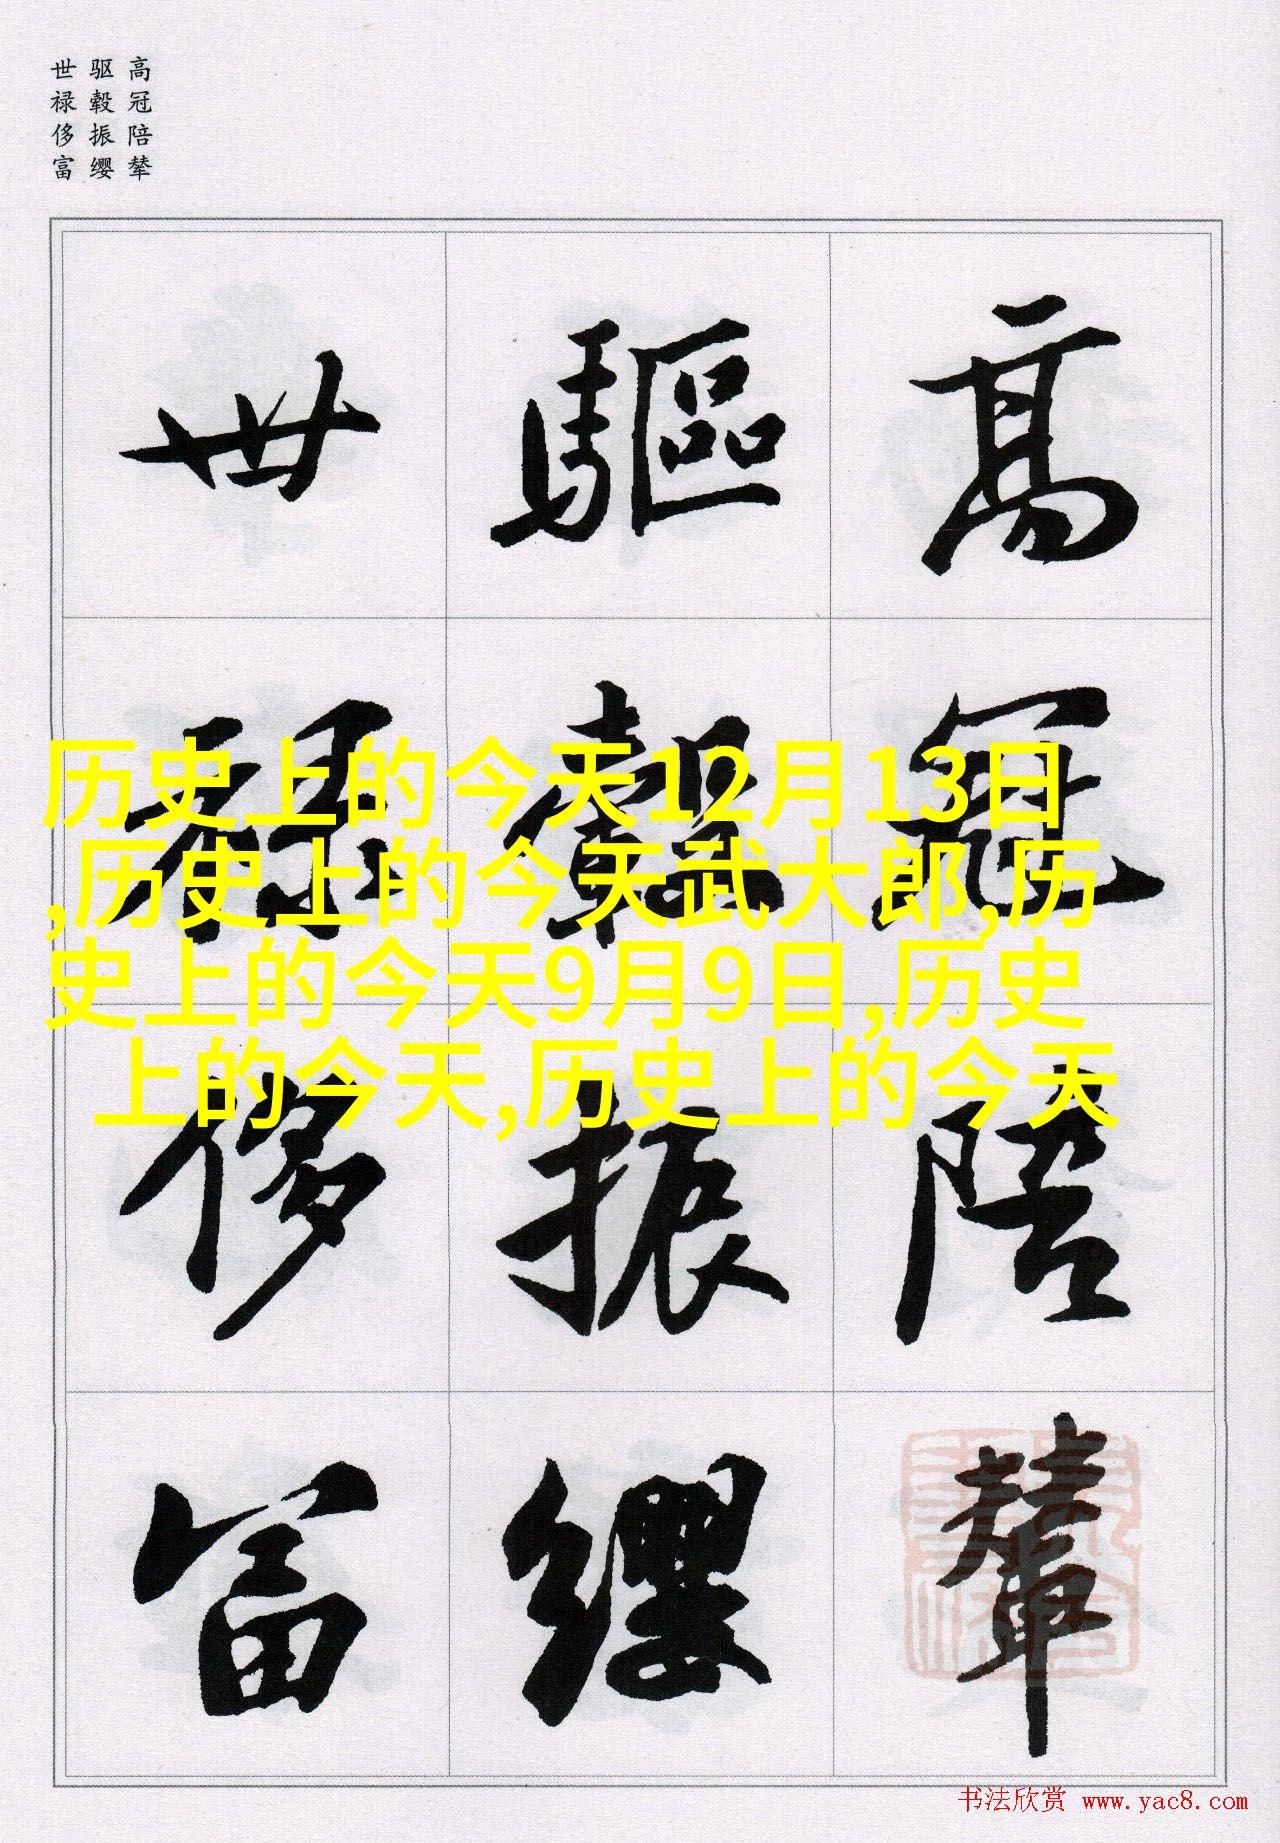 高冠陪辇
驱毂振缨
世禄侈富
高冠陪輦
驅轂振纓
世祿侈富
历史上的今天12月13日
,历史上的今天武大郎,历
史上的今天9月9日,历史
上的今天,历史上的今天
书法欣赏 www.yac8.com